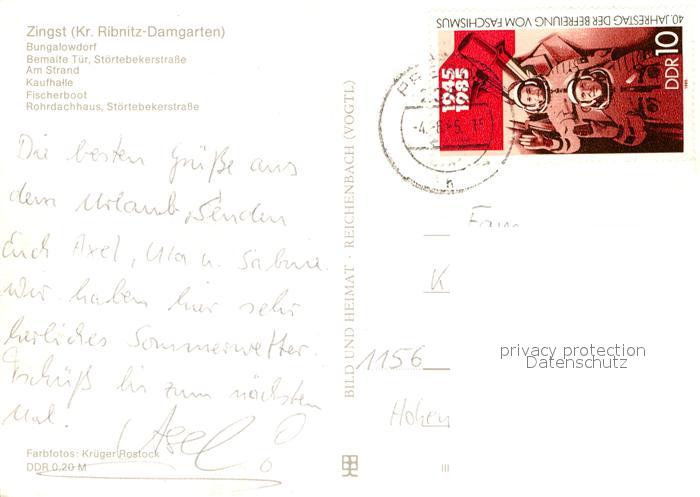 Zingst (Kr. Ribnitz-Damgarten)
Bungalowdorf
Bemalte Tür, Störtebekerstraße
Am Strand
Kaufhalle
Fischerboot
Rohrdachhaus, Störtebekerstraße
Die besten Grüße aus
dem Urlaub, senden
Euch Axel, Ulla u. Sabine.
Wir haben hier sehr
herrliches Sommerwetter.
Tschüß bis zum nächsten
Mal.
Axel
Farbfotos: Krüger, Rostock
DDR 0,20 M
BILD UND HEIMAT · REICHENBACH (VOGTL)
40. JAHRESTAG DER BEFREIUNG VOM FASCHISMUS
DDR 10
1945
1985
Fam
K
1156
Hohen
III
privacy protection
Datenschutz